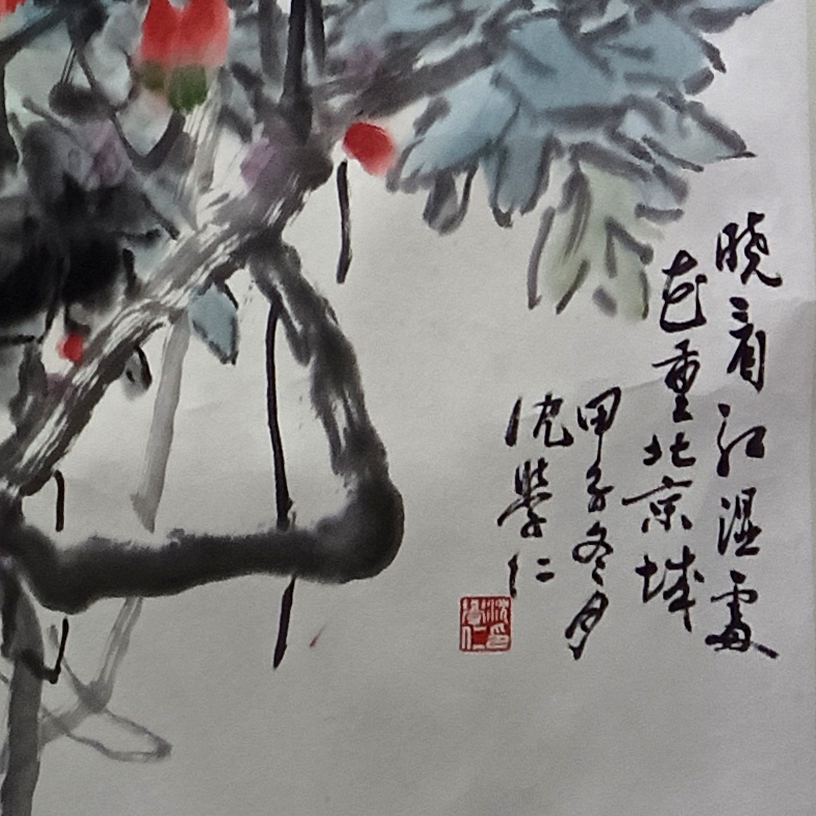 晓看红湿處
花重北京城
甲子冬月
沈學仁